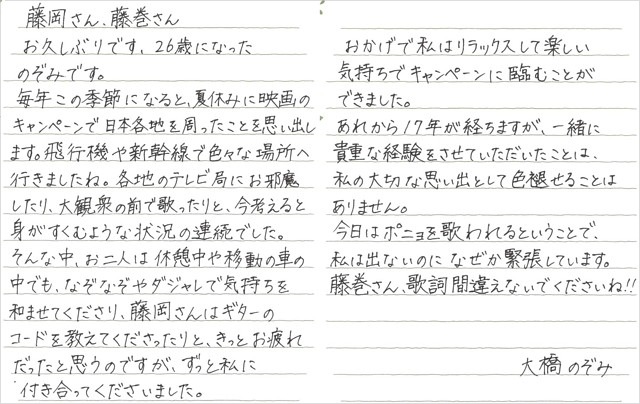 藤岡さん、藤巻さん
お久しぶりです、26歳になった
のぞみです。
毎年この季節になると、夏休みに映画の
キャンペーンで日本各地を周ったことを思い出し
ます。飛行機や新幹線で色々な場所へ
行きましたね。各地のテレビ局にお邪魔
したり、大観衆の前で歌ったりと、今考えると
身がすくむような状況の連続でした。
そんな中、お二人は休憩中や移動の車の
中でも、なぞなぞやダジャレで気持ちを
和ませてくださり、藤岡さんはギターの
コードを教えてくださったりと、きっとお疲れ
だったと思うのですが、ずっと私に
付き合ってくださいました。
おかげで私はリラックスして楽しい
気持ちでキャンペーンに臨むことが
できました。
あれから17年が経ちますが、一緒に
貴重な経験をさせていただいたことは、
私の大切な思い出として色褪せることは
ありません。
今日はポニョを歌われるということで、
私は出ないのになぜか緊張しています。
藤巻さん、歌詞間違えないでくださいね!!
大橋のぞみ